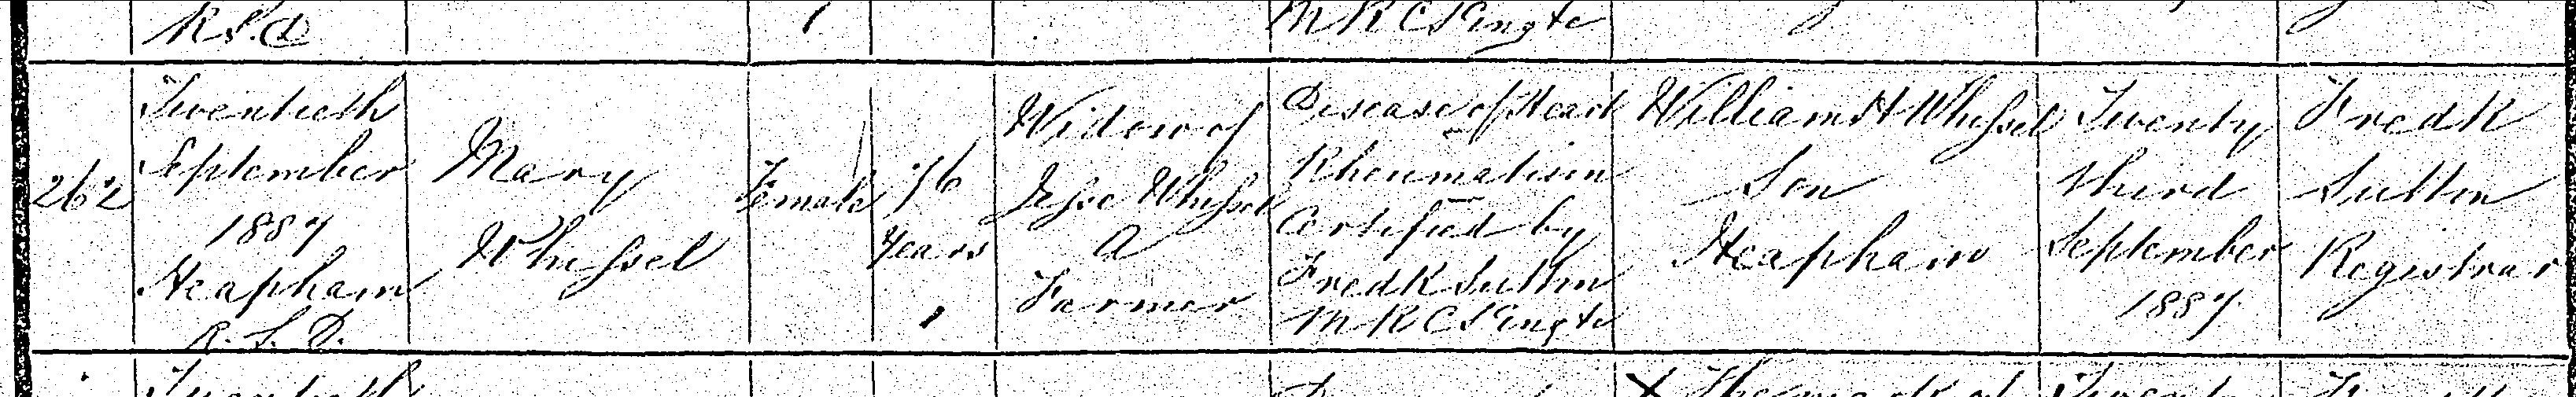 R.S.D
1
M R C S Engte
262
Twentieth
September
1887
Heapham
R. S. D.
Mary
Whissel
Female
76
Years
Widow of
Jesse Whissel
a
Farmer
Disease of Heart
Rheumatism
Certified by
Fredk Sutton
M R C S Engte
William H Whissel
Son
Heapham
Twenty
third
September
1887
Fredk
Sutton
Registrar
Twentieth
X The mark of